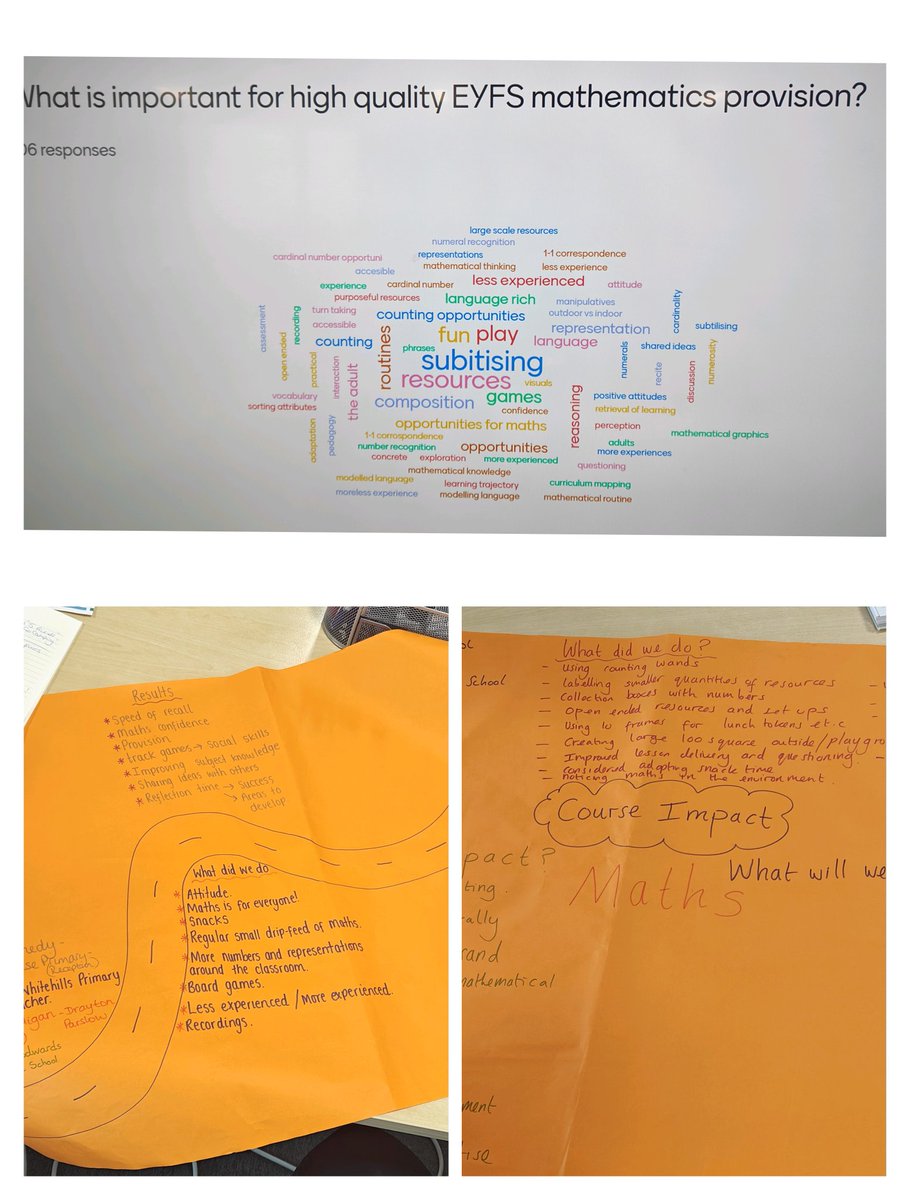 What is important for high quality EYFS mathematics provision?
06 responses
large scale resources
numeral recognition
cardinal number opportuni
representations
1-1 correspondence
accesible
mathematical thinking
less experience
experience
cardinal number
less experienced
attitude
purposeful resources
language rich
manipulatives
cardinality
assessment
recording
turn taking
counting opportunities
outdoor vs indoor
accessible
fun
play
representation
subtilising
open ended
practical
counting
routines
phrases
language
numerals
shared ideas
numerosity
interaction
the adult
subitising
recite
discussion
resources
visuals
vocabulary
composition
games
reasoning
positive attitudes
sorting attributes
confidence
retrieval of learning
adaptation
pedagogy
opportunities for maths
perception
1-1 corrospondence
mathematical graphics
number recognition
opportunities
adults
concrete
exploration
more experienced
more experiences
mathematical knowledge
questioning
modelled language
learning trajectory
curriculum mapping
moreless experience
modelling language
mathematical routine
Results
* Speed of recall
* Maths confidence
* Provision
* track games → social skills
* Improving subject knowledge
* Sharing ideas with others
* Reflection time → Success
→ Areas to
develop
What did we do
* Attitude
* Maths is for everyone!
* Snacks
* Regular small drip-feed of maths.
* More numbers and representations
around the classroom.
* Board games.
* Less experienced / More experienced.
* Recordings.
nedy -
se Primary
(Reception)
Whitehills Primary
cher.
igan - Drayton
Parslow
dwards
School
What did we do?
- Using counting wands
School
- Labelling smaller quantities of resources
- Collection boxes with numbers
- Open ended resources and set ups
- Using 10 frames for lunch tokens et.c
- Creating large 100 square outside/playgro
- Improved lesson delivery and questioning
- considered adapting snack time
- noticing maths in the environment.
Course Impact
pact?
What will we
Maths
ting.
ally
rand
mathematical
ment
tise